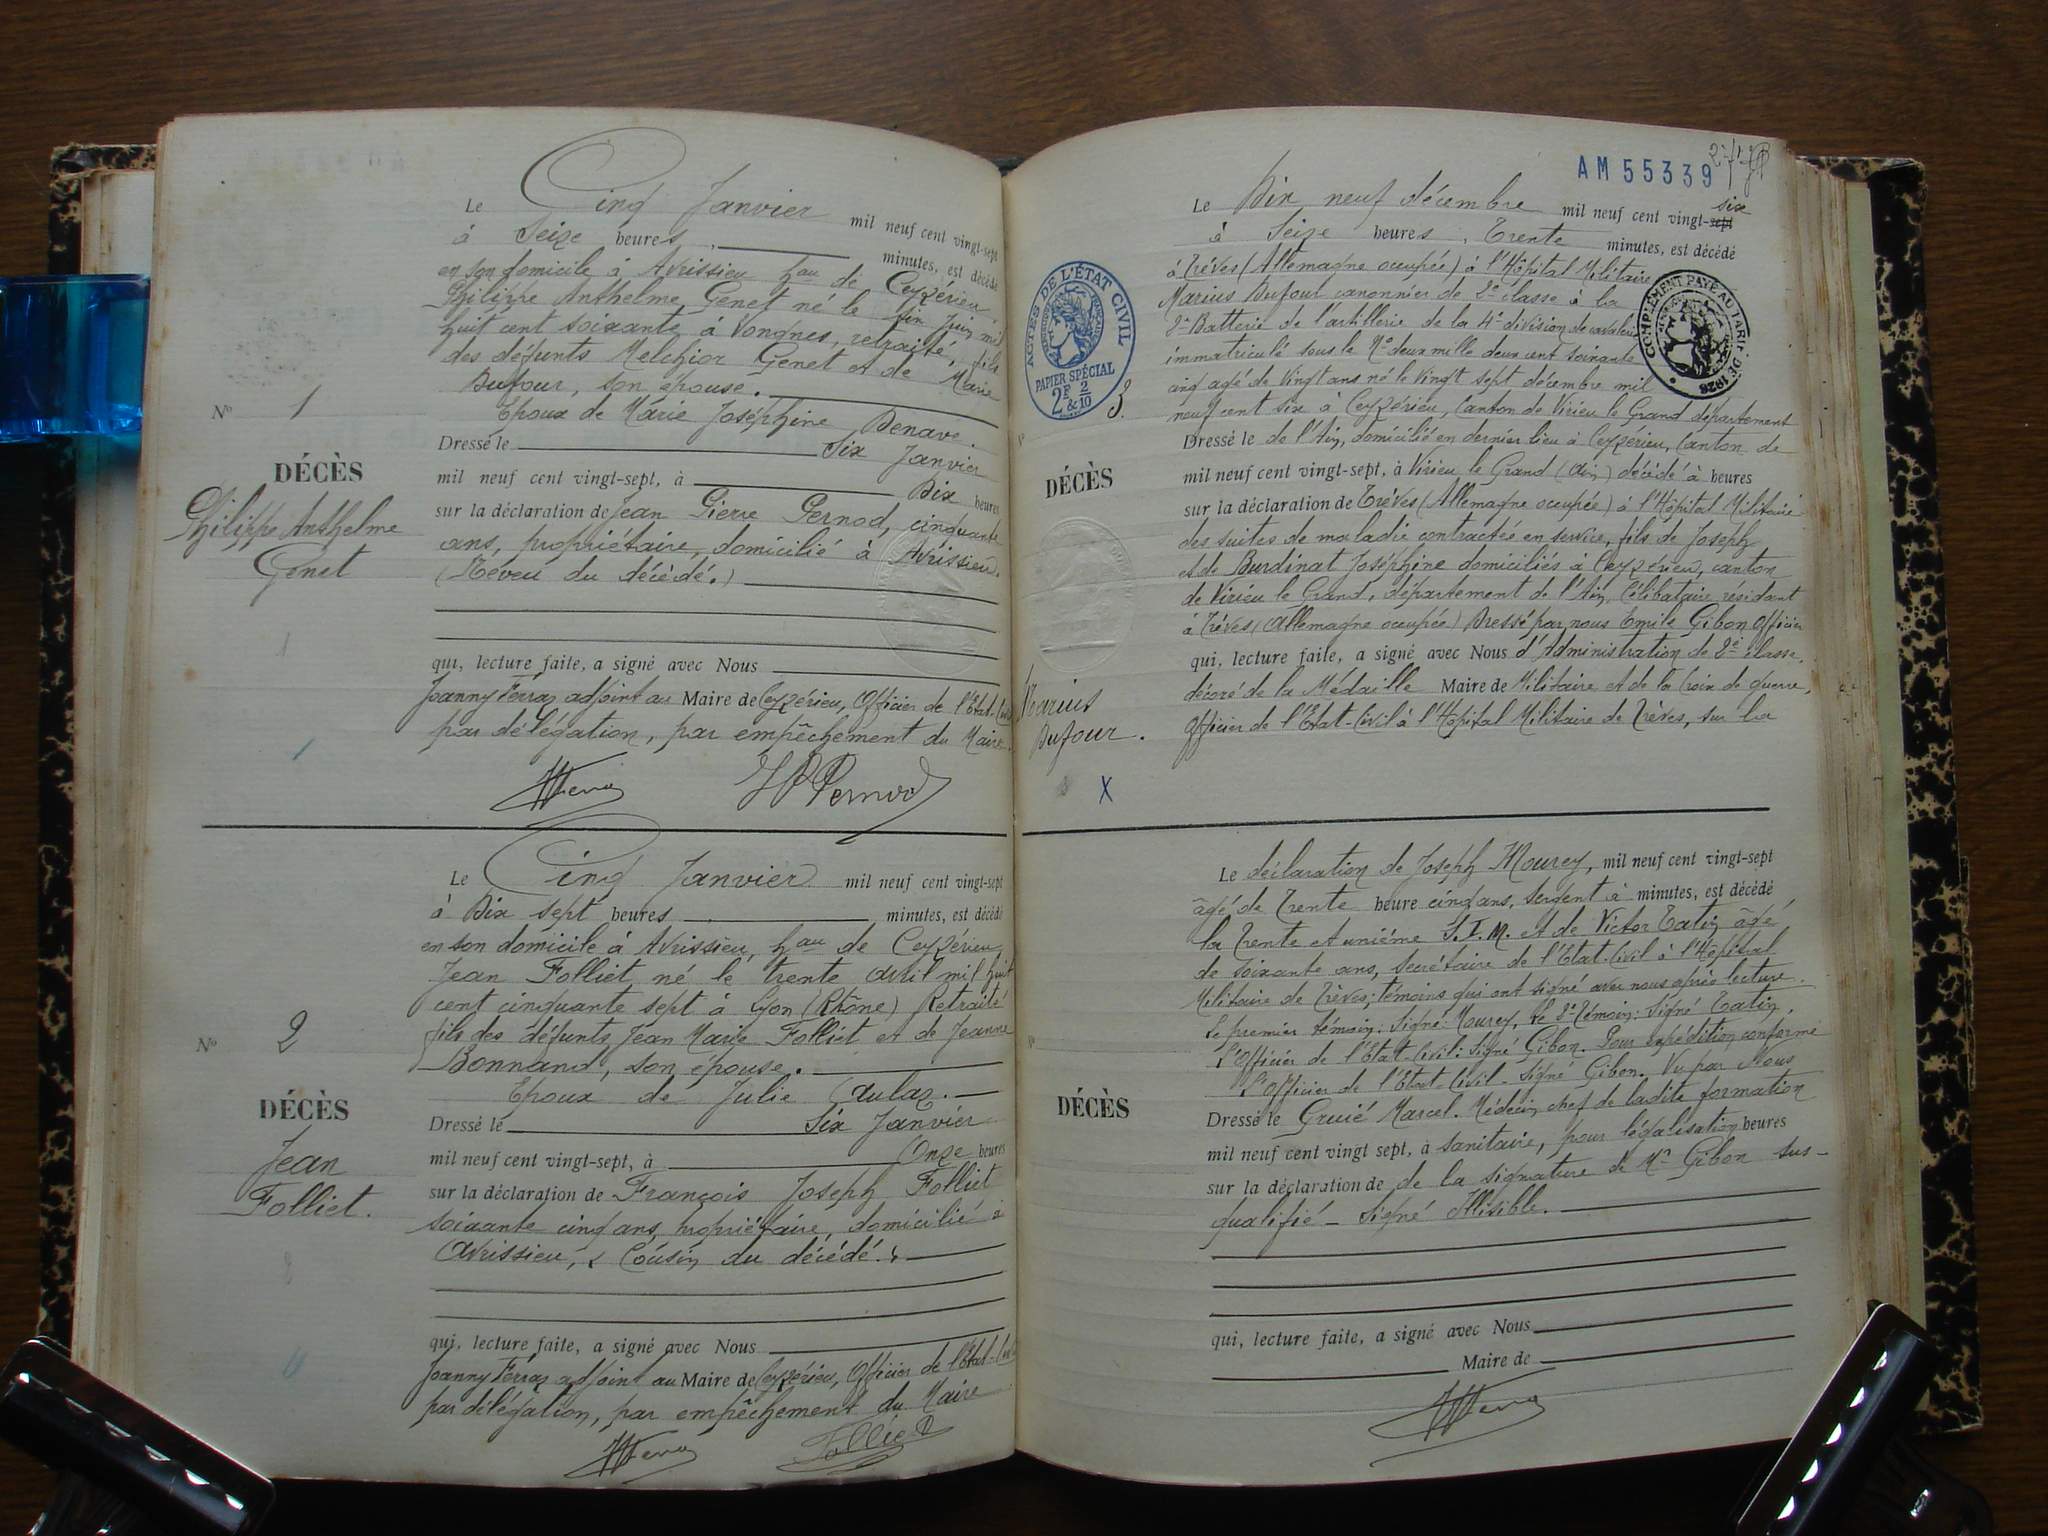 Le Cinq Janvier mil neuf cent vingt-sept
à Seize heures, minutes, est décédé
en son domicile à Avrissieu hau de Ceyzérieu
Philippe Anthelme Genet né le juin mil
huit cent soixante à Vongnes, retraité, fils
des défunts Melchior Genet et de Marie
Dufour, son épouse.
Epoux de Marie Joséphine Benave.
N° 1
Dressé le Six Janvier
DÉCÈS
mil neuf cent vingt-sept, à Dix heures
Philippe Anthelme
Genet
sur la déclaration de Jean Pierre Pernod, cinquante
ans, propriétaire, domicilié à Avrissieu.
(Neveu du décédé.)
1
qui, lecture faite, a signé avec Nous
Joanny Ferraz adjoint au Maire de Ceyzérieu, Officier de l'Etat-Civil
par délégation, par empêchement du Maire.
1
JP Pernod
Le Cinq Janvier mil neuf cent vingt-sept
à Dix sept heures minutes, est décédé
en son domicile à Avrissieu, hau de Ceyzérieu
Jean Folliet né le trente avril mil huit
cent cinquante sept à Lyon (Rhône) Retraité
fils des défunts Jean Marie Folliet et de Jeanne
Bonnand, son épouse.
Epoux de Julie Caulaz.
N° 2
DÉCÈS
Jean
Folliet.
Dressé le Six Janvier
mil neuf cent vingt-sept, à Onze heures
sur la déclaration de François Joseph Folliet
soixante cinq ans, propriétaire, domicilié à
Avrissieu, Cousin du décédé.
qui, lecture faite, a signé avec Nous
Joanny Ferraz adjoint au Maire de Ceyzérieu, Officier de l'Etat-Civil
par délégation, par empêchement du Maire
Folliet
AM 55339
Le Dix neuf décembre mil neuf cent vingt-sept six
à Seize heures, Trente minutes, est décédé
à Trêves (Allemagne occupée) à l'Hôpital Militaire
Marius Dufour canonnier de 2e classe à la
2e Batterie de l'artillerie de la 4e division de cavalerie
immatriculé sous le No deux mille deux cent soixante
cinq agé de vingt ans né le vingt sept décembre mil
neuf cent six à Ceyzérieu, Canton de Virieu le Grand département
Dressé le de l'Ain, domicilié en dernier lieu à Ceyzérieu, Canton de
mil neuf cent vingt-sept, à Virieu le Grand (Ain) décédé à heures
sur la déclaration de Trêves (Allemagne occupée) à l'Hôpital Militaire
des suites de maladie contractés en service, fils de Joseph
et de Burdinat Joséphine domiciliés à Ceyzérieu, canton
de Virieu le Grand, département de l'Ain, Célibataire, résidant
à Trêves (Allemagne occupée) Dressé par nous Emile Gibon Officier
qui, lecture faite, a signé avec Nous d'Administration de 2e classe,
décoré de la Médaille Maire de Militaire et de la Croix de guerre,
Officier de l'Etat-Civil à l'Hôpital Militaire de Trêves, sur la
ACTES DE L'ÉTAT CIVIL
PAPIER SPÉCIAL
2F & 2/10
COMPLÉMENT PAYÉ AU TARIF DE 1926
3.
DÉCÈS
Marius
Dufour.
X
Le déclaration de Joseph Mourey, mil neuf cent vingt-sept
âgé de Trente heure cinq ans, Sergent à minutes, est décédé
la Trente et unième S.I.M. et de Victor Tatin âgé
de soixante ans, Secrétaire de l'Etat-Civil à l'Hôpital
Militaire de Trêves; témoins qui ont signé avec nous après lecture.
Le premier témoin: Signé: Mourey, le 2e Témoin: Signé Tatin,
l'Officier de l'Etat-Civil: Signé Gibon. Pour expédition conforme
l'Officier de l'Etat-Civil - Signé Gibon. Vu par Nous
DÉCÈS
Dressé le Gruié Marcel. Médecin chef de ladite formation
mil neuf cent vingt sept, à sanitaire, pour légalisation heures
sur la déclaration de de la signature de Mr Gibon sus-
qualifié - Signé Illisible.
qui, lecture faite, a signé avec Nous
Maire de